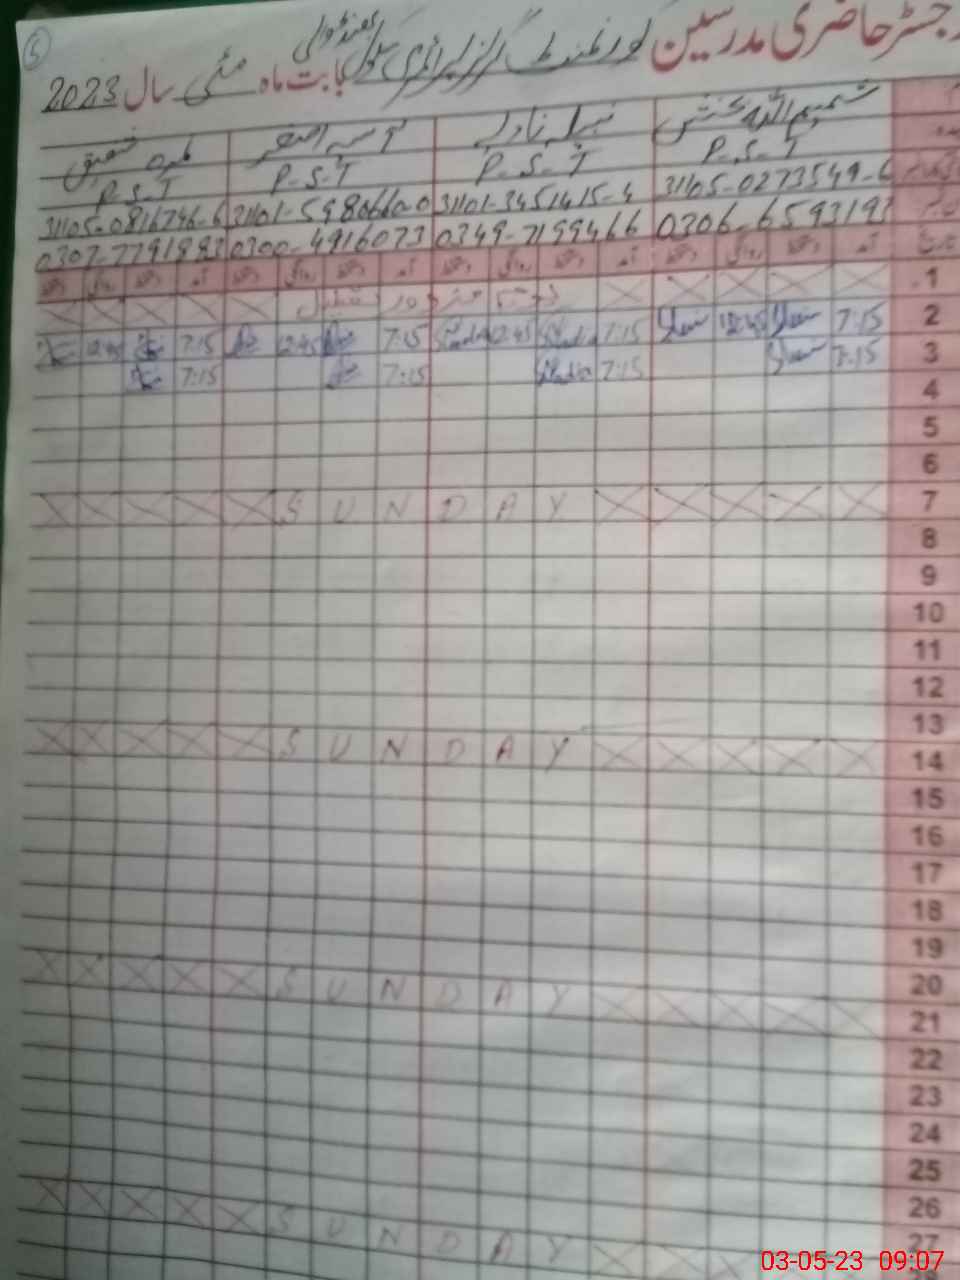 رجسٹر حاضری مدرسین گورنمنٹ گرلز پرائمری سکول بابت ماہ مئی سال 2023
5
شمیم اللہ بخش نبیلہ نادر آسیہ اصغر طیبہ شفیق
P-S-T P-S-T P-S-T P-S-T
31105-0273549-6 31101-3451415-4 31101-5980660-0 31105-0816746-6
0306-659319 0349-7199466 0300-4916073 0307-7791983
تاریخ آمد دستخط روانگی دستخط آمد دستخط روانگی دستخط آمد دستخط روانگی دستخط آمد دستخط روانگی دستخط
1 تعطیل
2 7:15 12:45 7:15 Nadia 12:45 7:15 12:45 7:15 12:45
3 7:15 7:15 Nadia 7:15 7:15
4
5
6
7 SUNDAY
8
9
10
11
12
13
14 SUNDAY
15
16
17
18
19
20
21 SUNDAY
22
23
24
25
26
27 SUNDAY
03-05-23 09:07